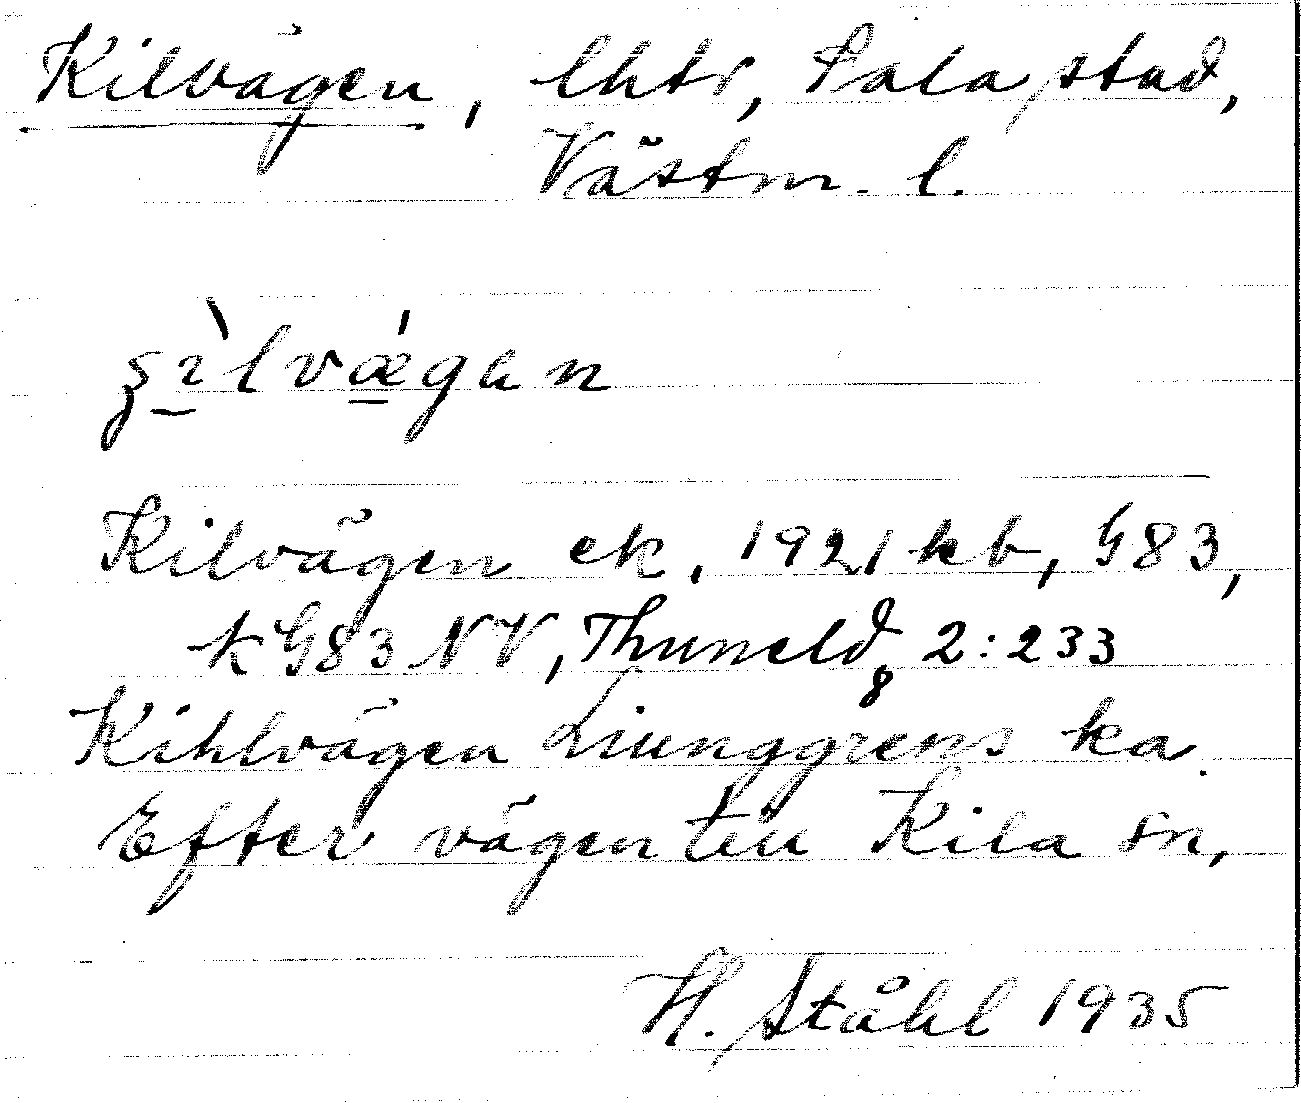 Kilvägen, lhtr, Sala stad,
Västm. l.
ʂìlvǽgan
Kilvägen ek, 1921 kb, G83,
kG83 NV, Thuneld8 2:233
Kihlvägen Liunggrens ka.
Efter vägen till Kila sn,
H. Ståhl 1935